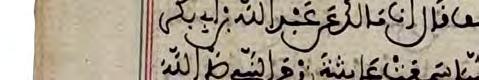 قال انا مالك عن عبد الله بن ابي بكر
عن عائشة زوج النبي صلى الله